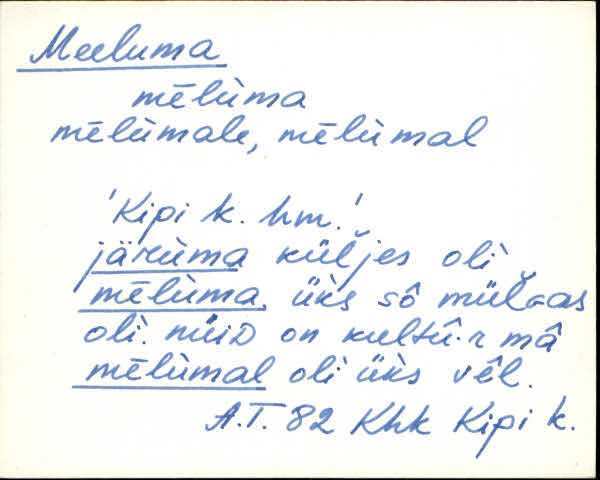 Meeluma
mēlùma
mēlùmale, mēlùmal
'Kipi k. hm.'
järùma küĺjes oli
mēlùma. üks sô müĺ͔as
oli. nüiD on kultû·r mâ
mēlùmal oli üks vêl.
A.T. 82 Khk Kipi k.